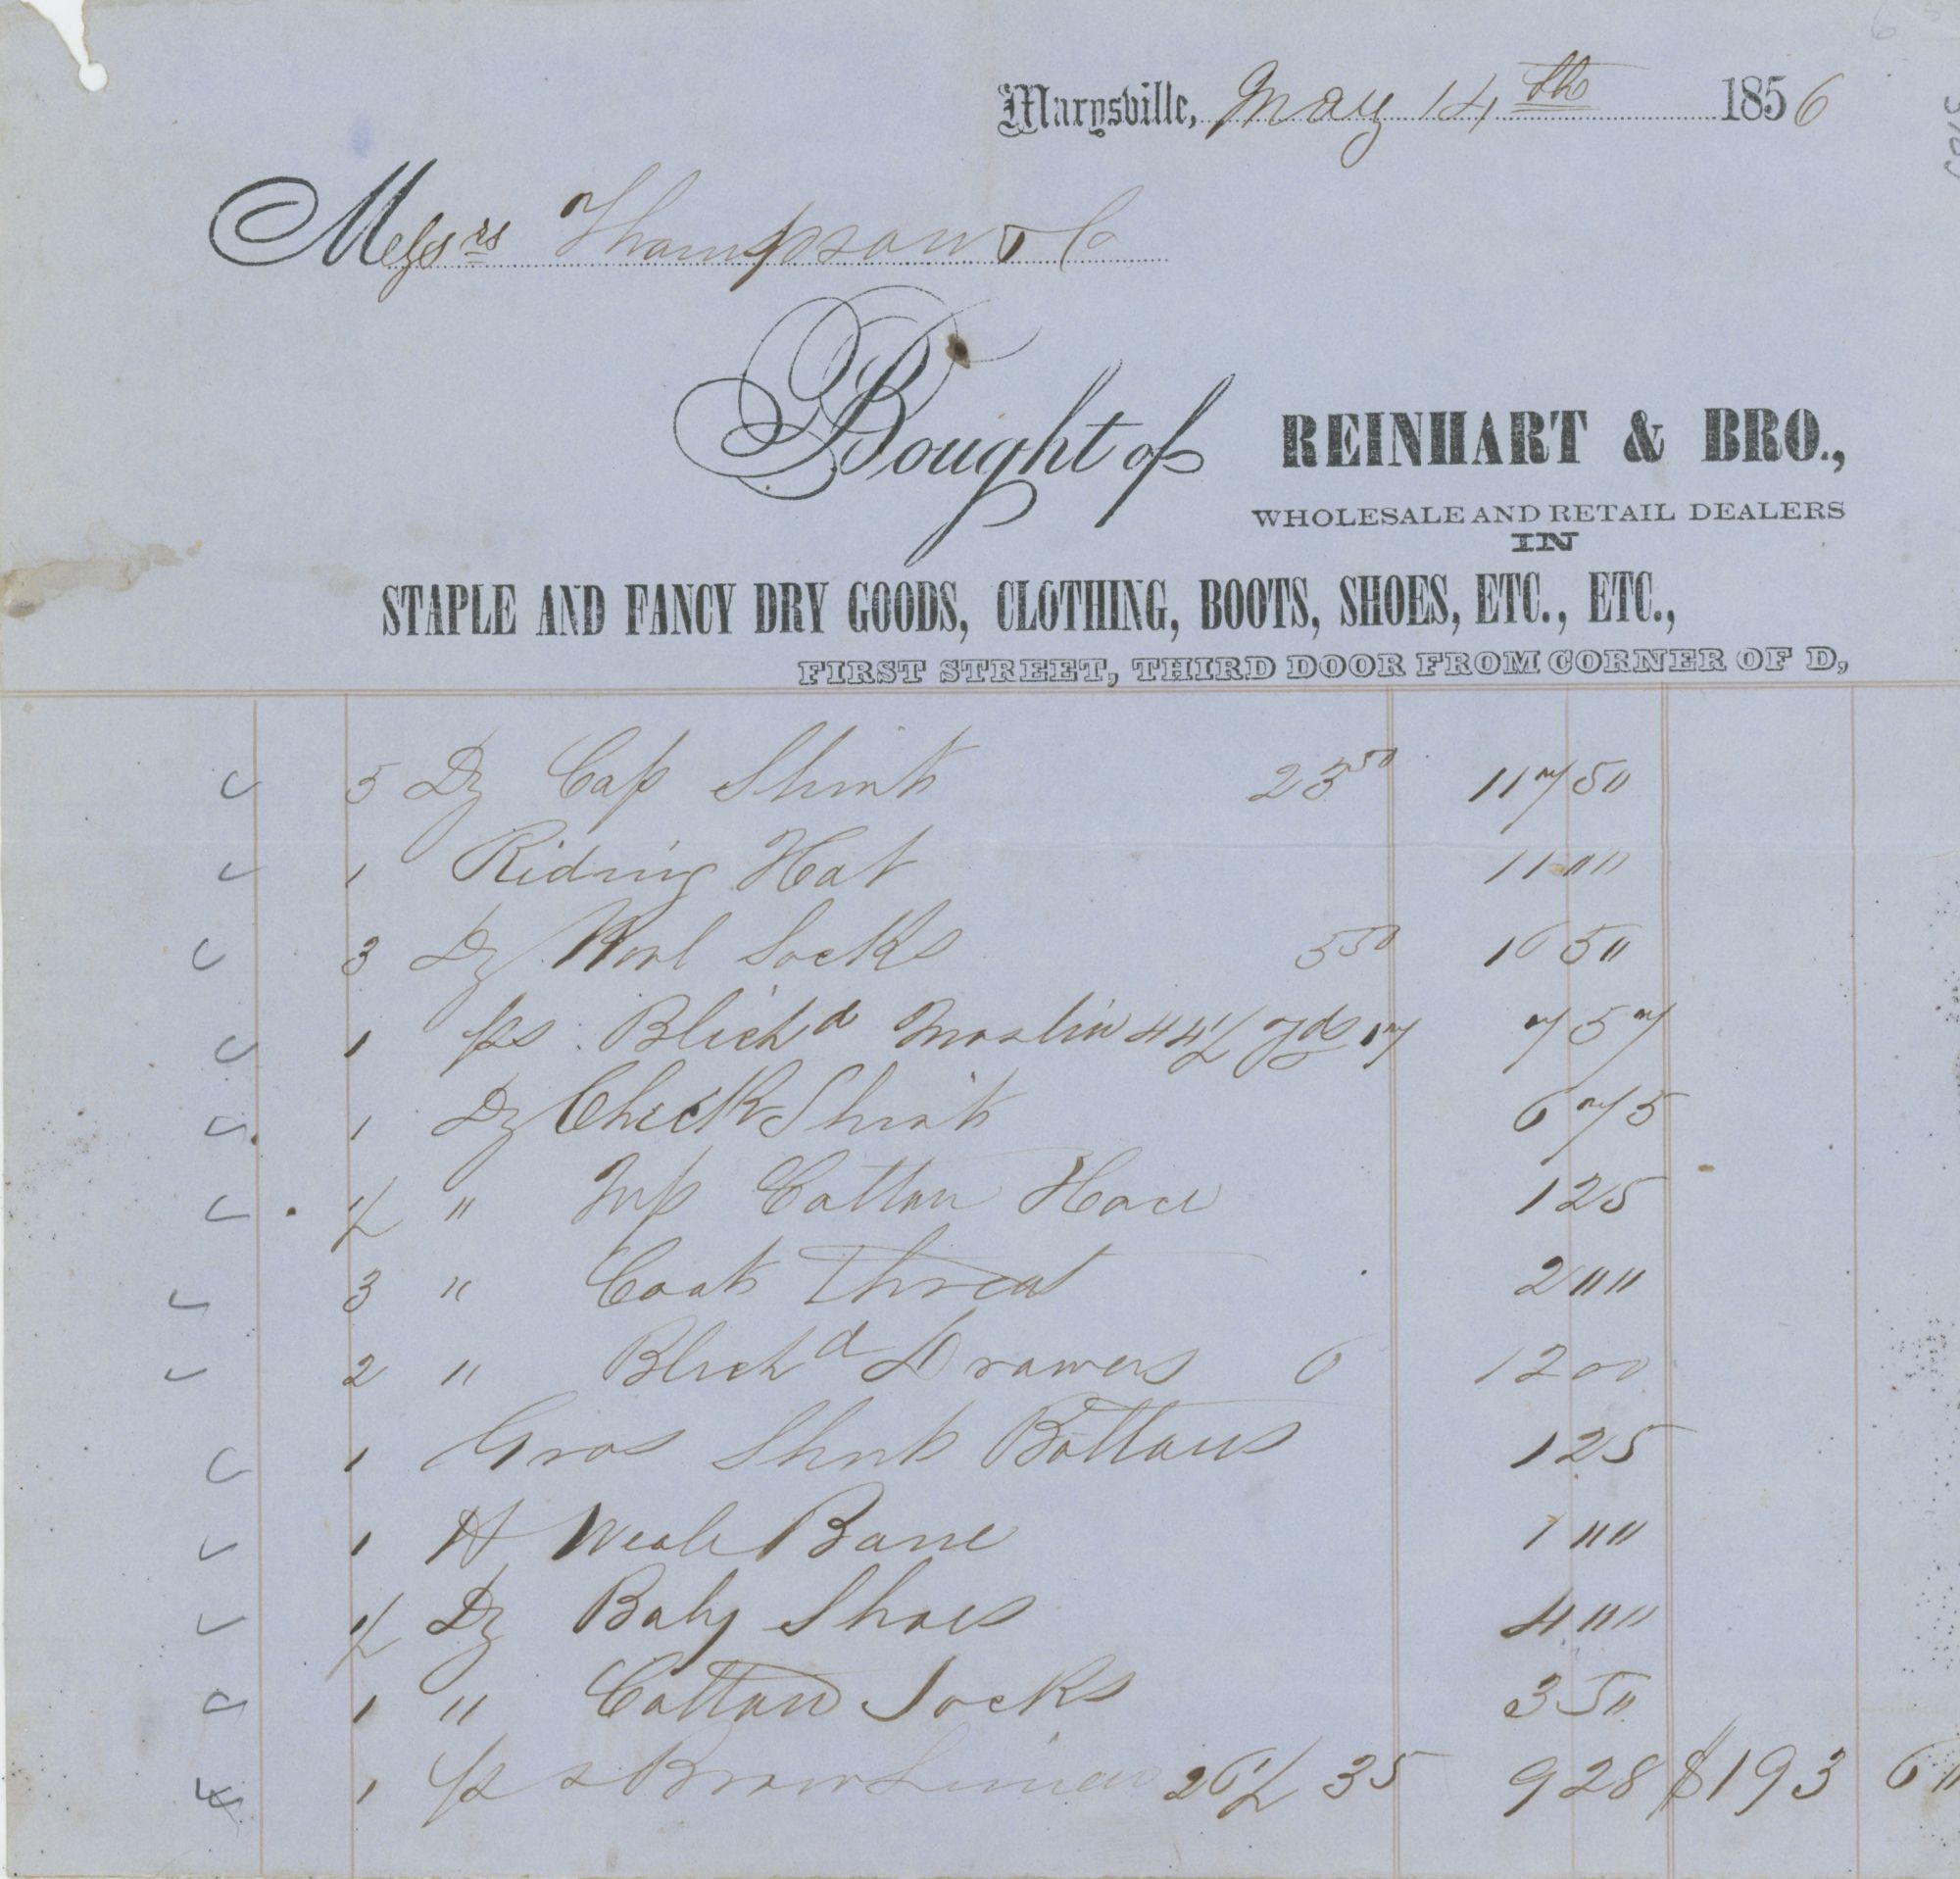 Marysville, May 14th 1856
Messrs Thompson & Co
Bought of REINHART & BRO.,
WHOLESALE AND RETAIL DEALERS
IN
STAPLE AND FANCY DRY GOODS, CLOTHING, BOOTS, SHOES, ETC., ETC.,
FIRST STREET, THIRD DOOR FROM CORNER OF D,
5 Dz Cap Shirts 23 50 117 50
1 Riding Hat 11 00
3 Dz Wool Socks 5 50 16 50
1 ps Blichd Moslin 44 1/2 yds 17 7 57
1 Dz Check Shirts 6 75
1/2 " Cotton Hose 1 25
3 " Coats Thread 2 00
2 " Blichd Drawers 6 12 00
1 Gros Shirt Buttons 1 25
1 Bone 1 00
1/2 Dz Baby Shoes 4 00
1 " Cotton Socks 3 50
1 ps Brown Linnen 26 1/2 35 9 28 $193 60